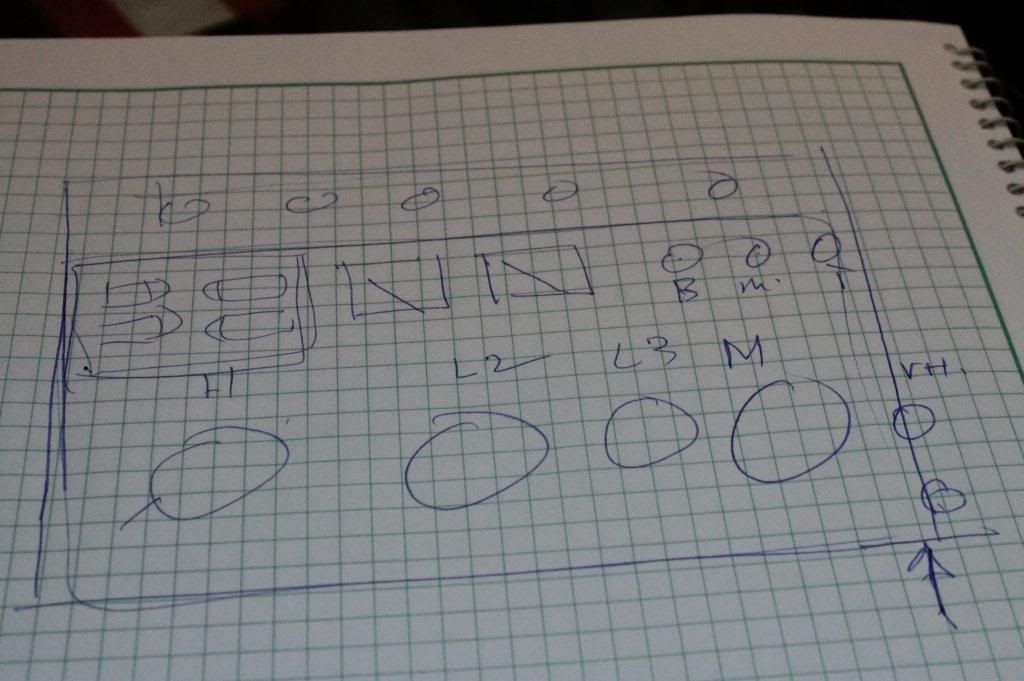 B m. T
L1 L2 L3 M VH.